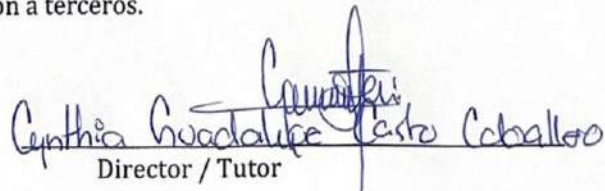 ón a terceros.
Cynthia Guadalupe Castro Caballero
Director / Tutor